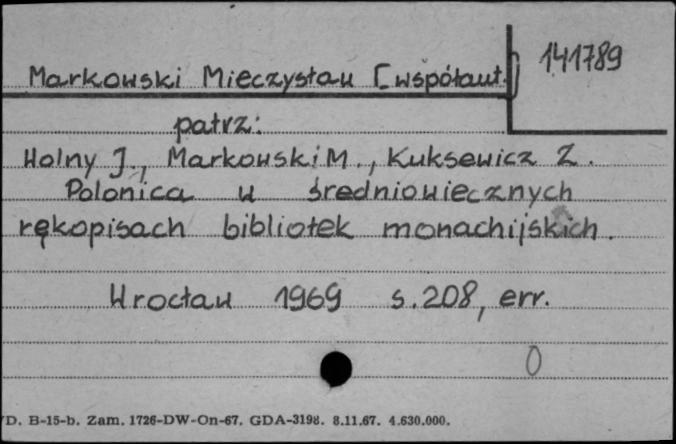 Markowski Mieczysław [współaut.]
141789
patrz:
Wolny J., Markowski M., Kuksewicz Z.
Polonica w średniowiecznych
rękopisach bibliotek monachijskich.
Wrocław 1969 s. 208, err.
0
D. B-15-b. Zam. 1726-DW-On-67. GDA-3198. 8.11.67. 4.630.000.